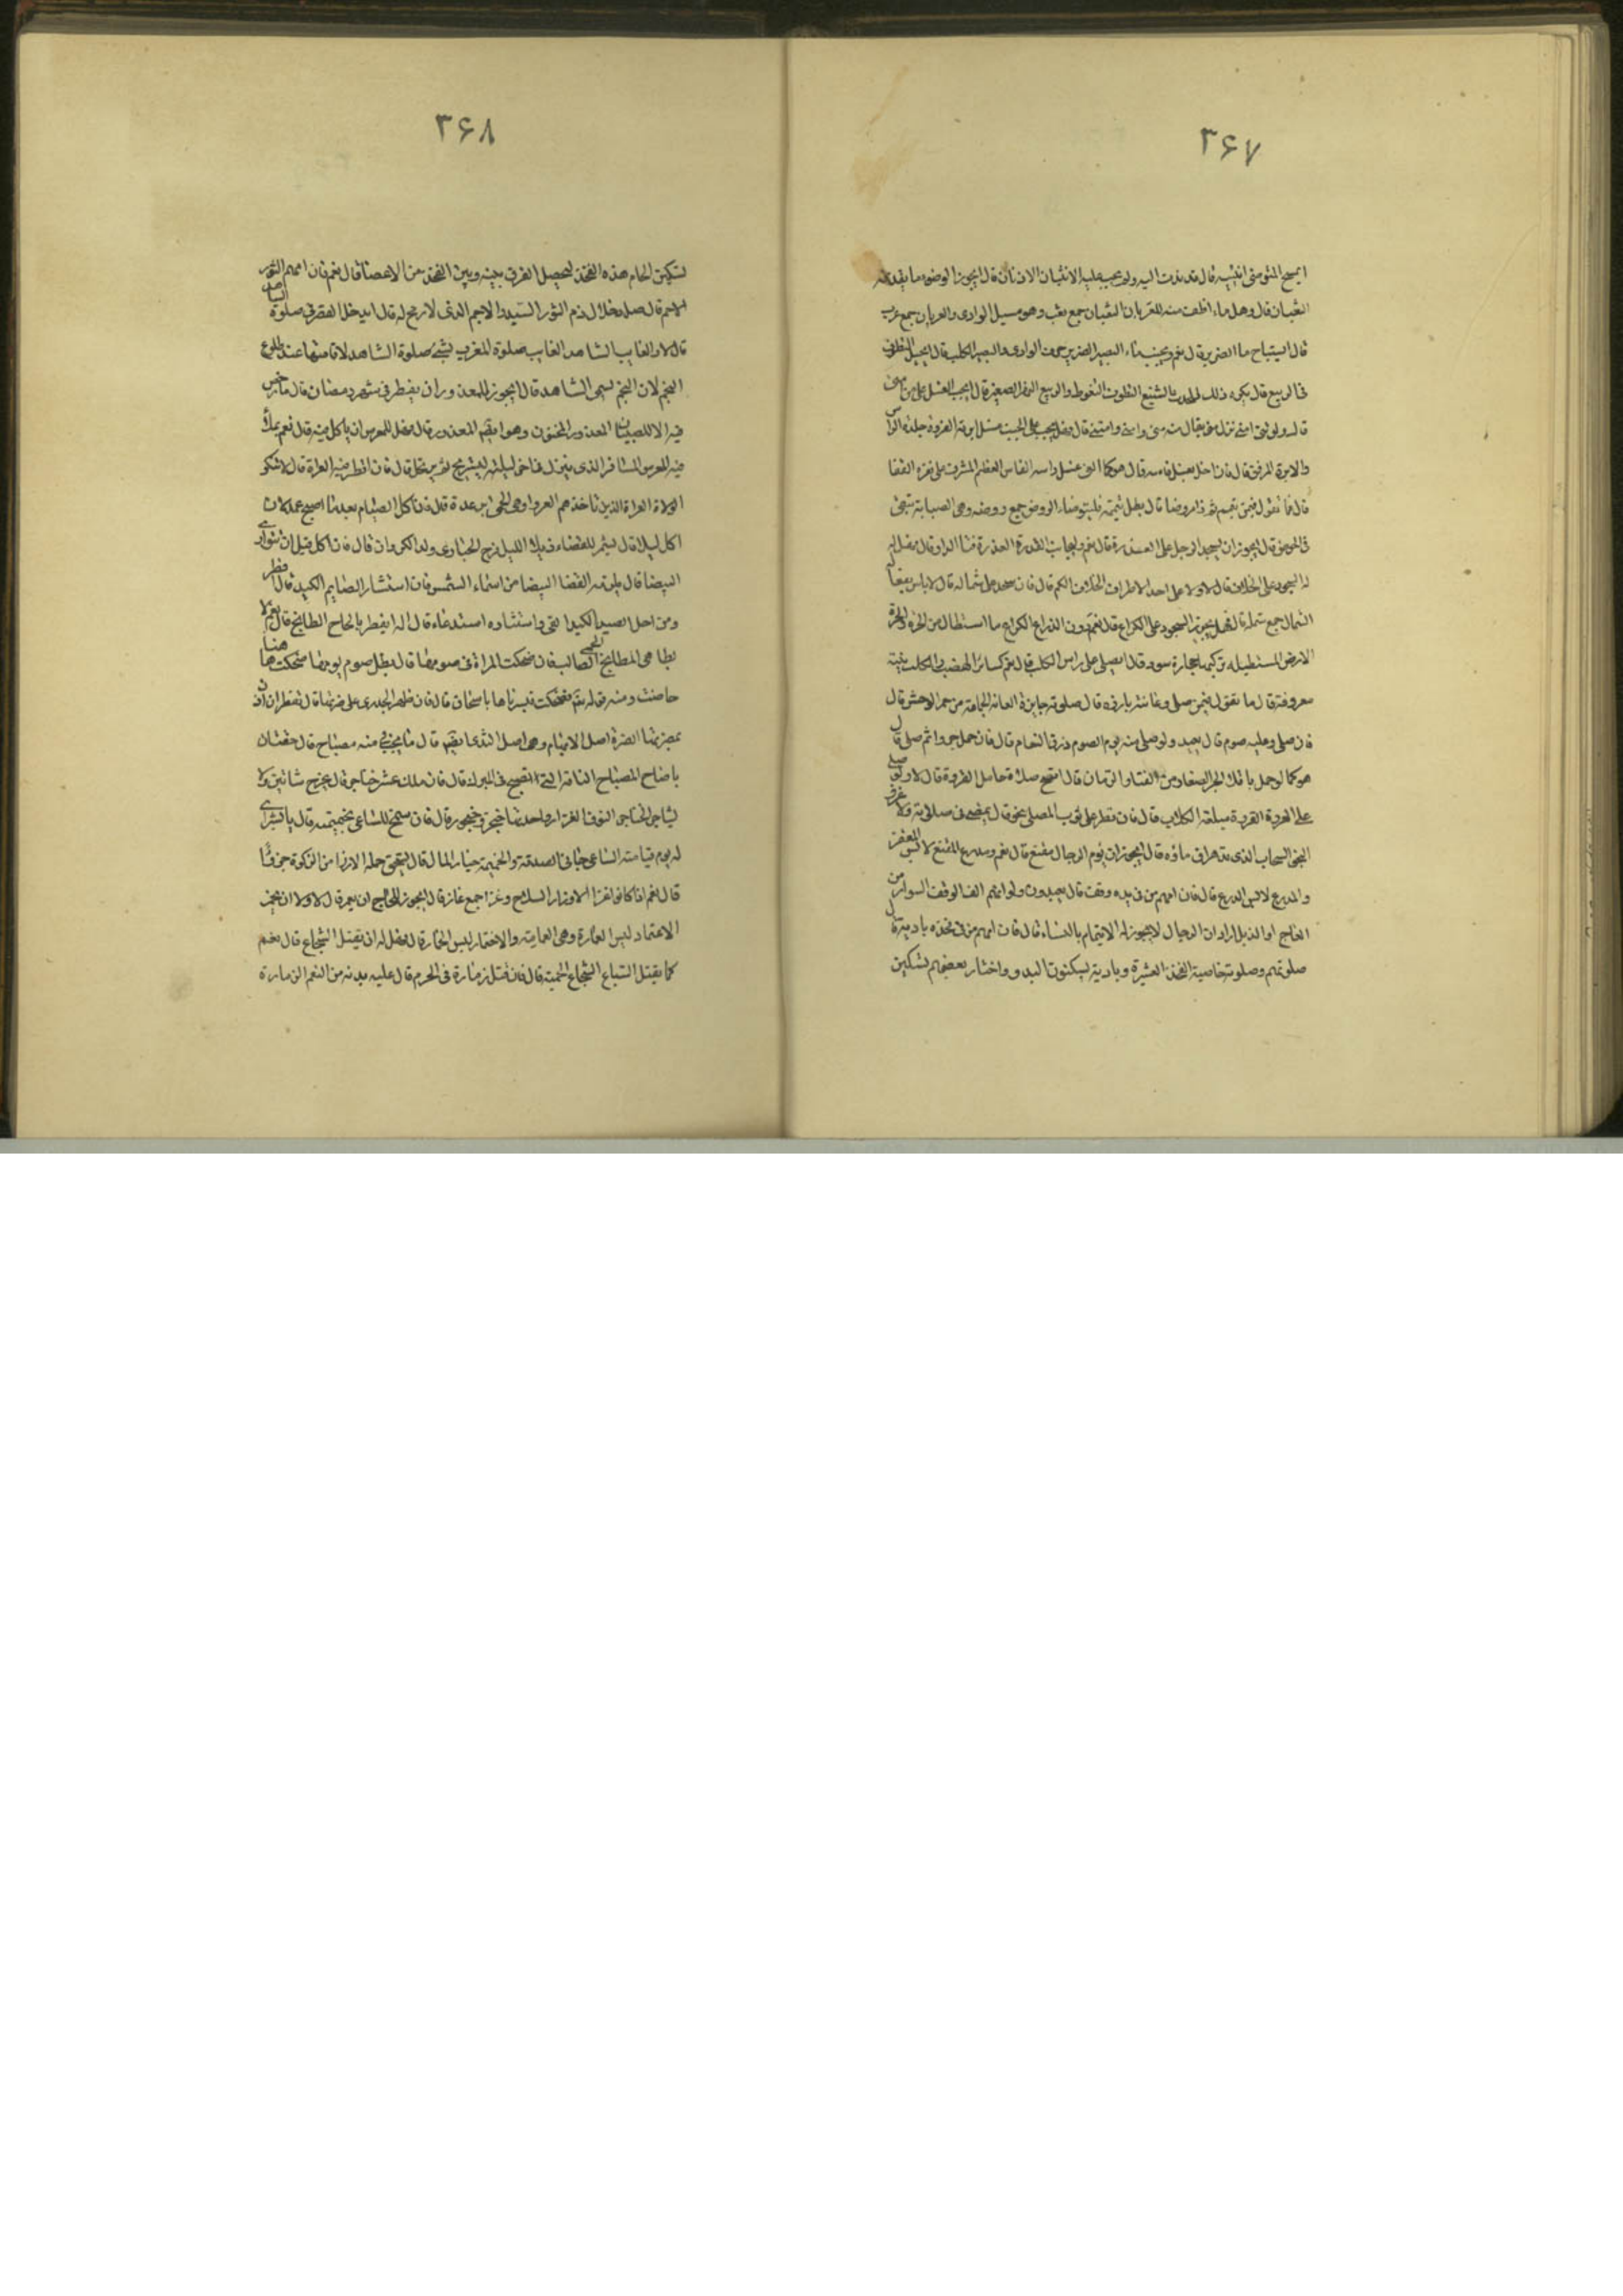 ۳۶۷
ايمسح المتوضى انثييه قال قد ندب اليه ولم يجب عليه الانثيان الاذنان قال ايجوز الوضوء ما يقذفه
الثعبان قال وهل ماء انظف منه للعربان الثعبان جمع ثعب وهو مسيل الوادى والعربان جمع عرب
قال ايستباح ماء الضرير قال نعم ويجتنب ماء البصير الضرير حرف الوادى والبصير الكلب قال ايحل التطوف
فى الربيع قال يكره ذلك للحدث الشنيع التطوف التغوط والربيع النهر الصغير قال ايجب الغسل على من امنى
قال لا ولو ثنى امنى نزل منى يقال منه منى وامنى وامتنى قال فهل يجب على الجنب غسل فروته الفروة جلدة الراس
والابرة المرفق قال فان اخل بغسل فاسه قال هو كما لو الغى غسل راسه الفاس العظم المشرف على نقرة القفا
قال فما تقول فيمن تيمم ثم راى روضا قال بطل تيممه فليتوضاء الروض جمع روضه وهى الصبابة تبقى
فى الحوض قال ايجوز ان يسجد الرجل على العذرة قال نعم وليجانب القذرة العذرة فناء الدار قال فهل
له السجود على الخلاف قال لا ولا على احد الاطراف الخلاف الكم قال فان سجد على شماله قال لا باس بفعاله
الشمال جمع شملة قال فهل يجوز السجود على الكراع قال نعم دون الذراع الكراع ما استطال من الحرة والحرة
الارض المستطيله تركبها حجارة سود قال ايصلى على راس الكلب قال نعم كسائر الهضب راس الكلب ثنية
معروفة قال ما تقول فيمن صلى وعانته بارزه قال صلوته جايزة العانة الجماعة من حمر الوحش قال
فان صلى وعليه صوم قال يعيد ولو صلى مئه يوم الصوم ذرق النعام قال فان حمل جروا ثم صلى قال
هو كما لو حمل باقلا الجرو الصغار من القثاء والرمان قال اتصح صلاة حامل القروة قال لا ولو صلى
على المروة القروة ميلغة الكلاب قال فان قطر على ثوب المصلى نجو قال يمضى فى صلاته ولا غرو
النجو السحاب الذى قد هراق ماؤه قال ايجوز ان يؤم الرجال مقنع قال نعم ومدرع المقنع لابس المغفر
والمدرع لابس الدرع قال فان امهم من فى يده وقف قال يعيدون ولو انهم الف الوقف السوار من
العاج او الذبل اراد ان الرجال لا يجوز له الايتمام بالنساء قال فان امهم من فى فخذه بادية قال
صلوتهم وصلوته خاصية الفخذ العشيرة وبادية يسكنون البدو واختار بعضهم تسكين
۳۶۸
لتسكين الخاء هذه الفخذ ليحصل الفرق بينه وبين الفخذ من الاعضاء قال نعم فان امهم الثور
الاجم قال صل وخلاك ذم الثور السيد والاجم الذى لا رمح له قال ايدخل القصر فى صلوة الشاهد
قال لا والغايب الشاهد الغايب صلوة المغرب يسمى صلوة الشاهد لاقامتها عند طلوع
النجم لان النجم يسمى الشاهد قال ايجوز للمعذور ان يفطر فى شهر رمضان قال ما رخص
فيه الا للصبيان المعذور المختون وهو ايضا المعذور قال فهل للمعرس ان ياكل فيه قال نعم بملء
فيه المعرس المسافر الذى ينزل فى اخر ليلته ليستريح ثم يرتحل قال فان افطر فيه العراة قال لا تنكر
الولاة العراة الذين تاخذهم العروا وهى الحمى برعدة قال فان اكل الصائم بعد ما اصبح
اكل ليلا قال ليشمر للقضاء ذيلا الليل فرخ الحبارى ولد الكروان قال فان اكل قبل ان تتوارى
البيضاء قال يلزمه القضاء البيضا من اسماء الشمس فان استثار الصايم الكيد قال افطر
ومن احل الصيد الكيد القى واستثاره استدعاه قال اله ان يفطر بالحاح الطابخ قال نعم لا
بطاهى المطابخ الطابخ الحمى الصالب فان ضحكت المراة فى صومها قال بطل صوم يومها ضحكت هنا
حاضت ومنه قوله تعم فضحكت فبشرناها باسحاق قال فان ظهر الجدرى على ضرتها قال تفطر ان اذن
بمضرتها الضرة اصل الابهام وهى اصل الثدى ايضا قال ما يجب فى مئة مصباح قال حقتان
يا صاح المصباح الناقة التى تصبح فى المبرك قال فان ملك عشر خناجر قال يخرج شاتين ولا
يشاجر الخناجر النوق الغزار واحدتها خنجر وخنجور قال فان سمح للساعى بحميمته قال يا بشرى
له يوم قيامته الساعى جابى الصدقة والحميمة خيار المال قال ايستحق حملة الاوزار من الزكوة جزءا
قال نعم اذا كانوا غزا الاوزار السلاح وغزا جمع غاز قال ايجوز للحاج ان يعتمر قال لا ولا ان يختمر
الاعتمار لبس العمارة وهى العمامة والاختمار لبس الخمار قال فهل له ان يقتل الشجاع قال نعم
كما يقتل السباع الشجاع الحية قال فان قتل زمارة فى الحرم قال عليه بدنه من النعم الزمارة